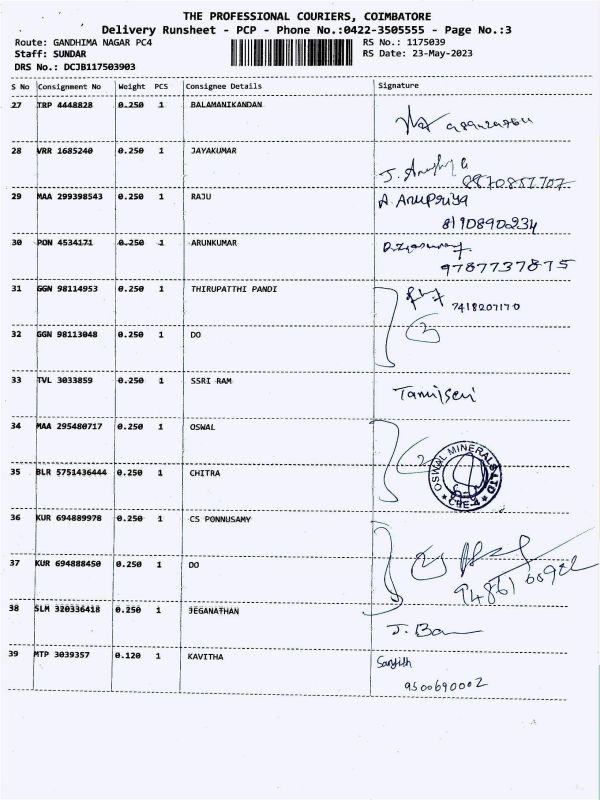 THE PROFESSIONAL COURIERS, COIMBATORE
Delivery Runsheet - PCP - Phone No.:0422-3505555 - Page No.:3
Route: GANDHIMA NAGAR PC4 RS No.: 1175039
Staff: SUNDAR RS Date: 23-May-2023
DRS No.: DCJB117503903
S No Consignment No Weight PCS Consignee Details Signature
27 TRP 4448828 0.250 1 BALAMANIKANDAN
28 VRR 1685240 0.250 1 JAYAKUMAR
8870857707
29 MAA 299398543 0.250 1 RAJU A. Anupriya
8190890234
30 PON 4534171 0.250 1 ARUNKUMAR
9787737875
31 GGN 98114953 0.250 1 THIRUPATTHI PANDI
7418207170
32 GGN 98113048 0.250 1 DO 2
33 TVL 3033859 0.250 1 SSRI RAM
Tamilselvi
34 MAA 295480717 0.250 1 OSWAL
2 OSWAL MINERALS LTD
CBE-4
35 BLR 5751436444 0.250 1 CHITRA
36 KUR 694889978 0.250 1 CS PONNUSAMY
2
37 KUR 694888450 0.250 1 DO
38 SLM 320336418 0.250 1 JEGANATHAN
39 MTP 3039357 0.120 1 KAVITHA
9500690002